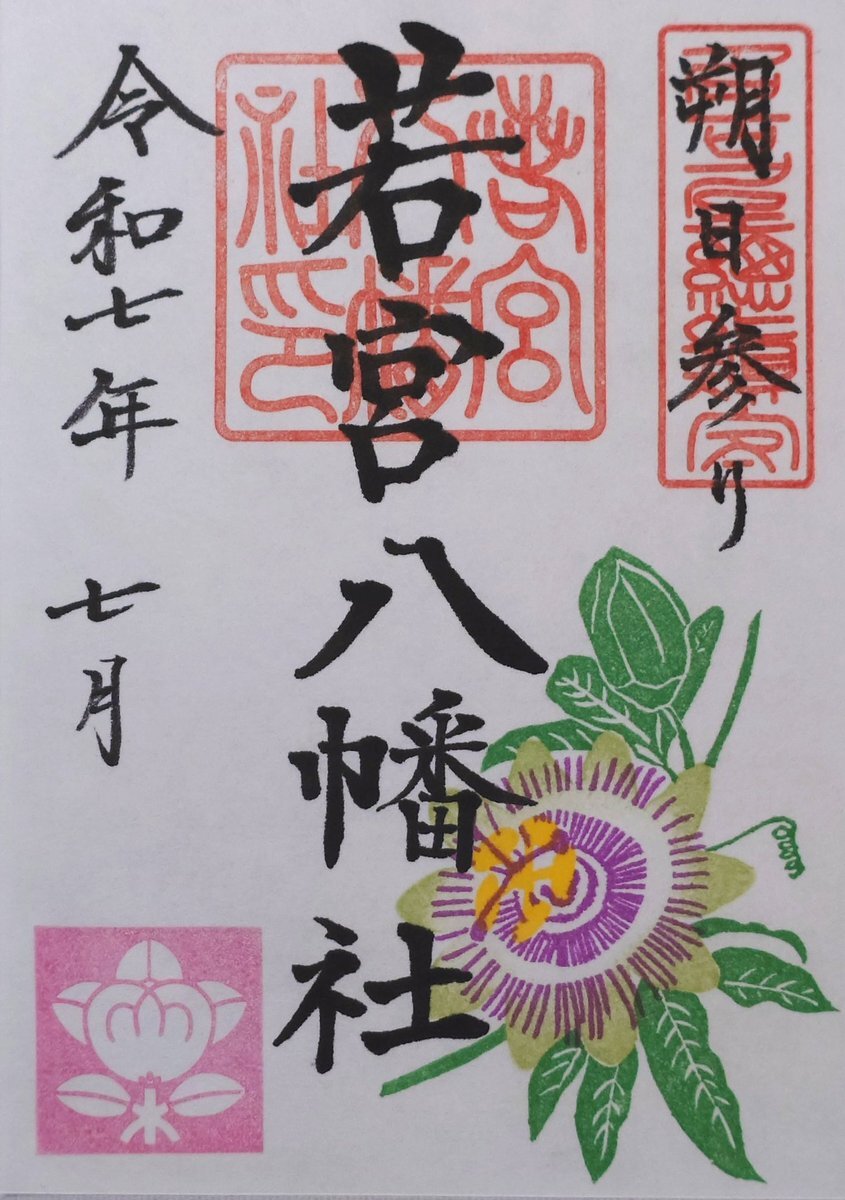 朔日参り
若宮八幡社
若宮八幡社印
令和七年 七月